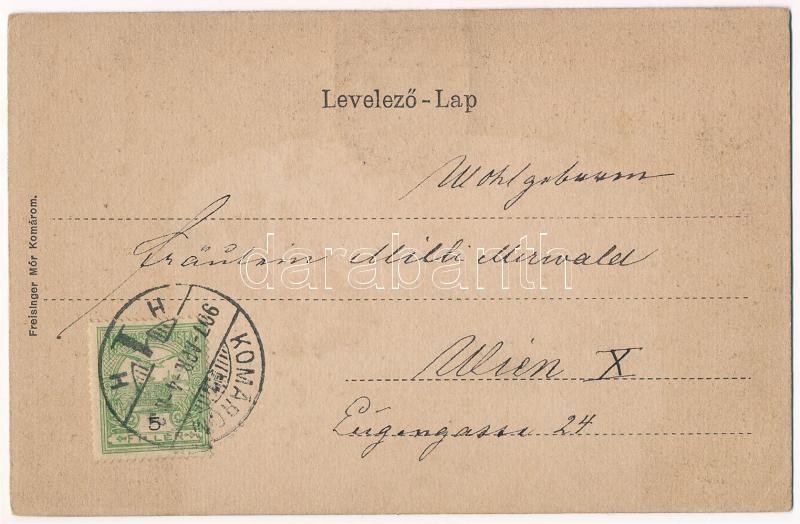 Levelező-Lap
Wohlgeboren
Fräulein Milli Merwald
Wien X
Eugengasse 24
Freisinger Mór Komárom.
KOMÁROM
907 APR
5
FILLÉR
darabanth